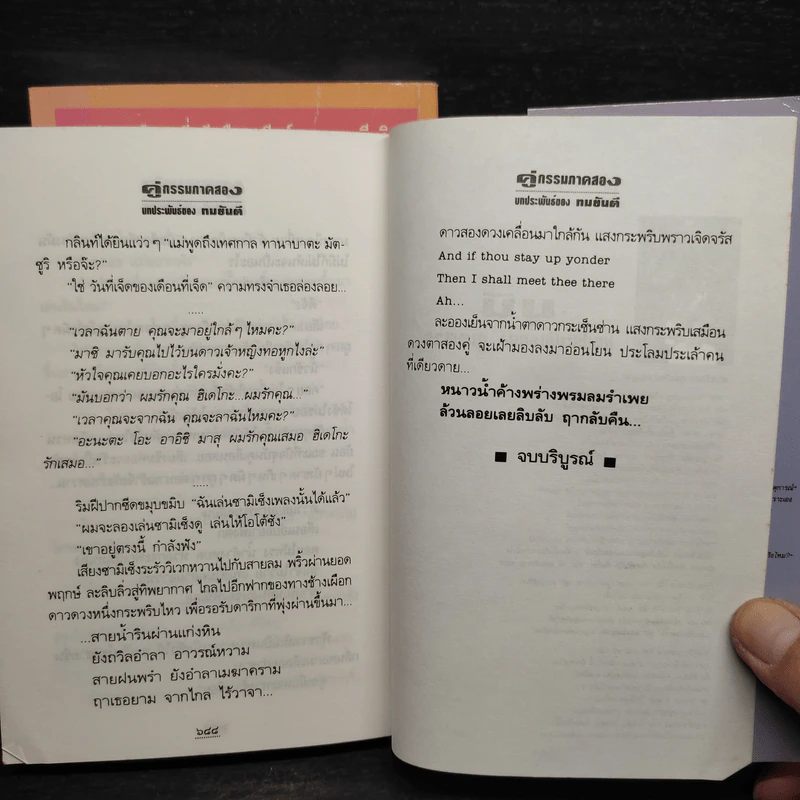 คู่กรรมภาคสอง
บทประพันธ์ของ ทมยันตี
กลินท์ได้ยินแว่วๆ "แม่พูดถึงเทศกาล ทานาบาตะ มัต-
ซูริ หรือจ๊ะ?"
"ใช่ วันที่เจ็ดของเดือนที่เจ็ด" ความทรงจำเธอล่องลอย...
.....
"เวลาฉันตาย คุณจะมาอยู่ใกล้ๆ ไหมคะ?"
"มาซิ มารับคุณไปไว้บนดาวเจ้าหญิงทอหูกไงล่ะ"
"หัวใจคุณเคยบอกอะไรใครมั่งคะ?"
"มันบอกว่า ผมรักคุณ ฮิเดโกะ...ผมรักคุณ..."
"เวลาคุณจะจากฉัน คุณจะลาฉันไหมคะ?"
"อะนะตะ โอะ อาอิชิ มาสุ ผมรักคุณเสมอ ฮิเดโกะ
รักเสมอ..."
.....
ริมฝีปากซีดขมุบขมิบ "ฉันเล่นซามิเซ็งเพลงนั้นได้แล้ว"
"ผมจะลองเล่นซามิเซ็งดู เล่นให้โอโต้ซัง"
"เขาอยู่ตรงนี้ กำลังฟัง"
เสียงซามิเซ็งระรัววิเวกหวานไปกับสายลม พริ้วผ่านยอด
พฤกษ์ ละลิบลิ่วสู่ทิพยากาศ ไกลไปอีกฟากของทางช้างเผือก
ดาวดวงหนึ่งกระพริบไหว เพื่อรอรับดาริกาที่พุ่งผ่านขึ้นมา...
...สายน้ำรินผ่านแก่งหิน
ยังถวิลอำลา อาวรณ์หวาม
สายฝนพรำ ยังอำลาเมฆาคราม
ฤาเธอยาม จากไกล ไร้วาจา...
๖๘๘
คู่กรรมภาคสอง
บทประพันธ์ของ ทมยันตี
ดาวสองดวงเคลื่อนมาใกล้กัน แสงกระพริบพราวเจิดจรัส
And if thou stay up yonder
Then I shall meet thee there
Ah...
ละอองเย็นจากน้ำตาดาวกระเซ็นซ่าน แสงกระพริบเสมือน
ดวงตาสองคู่ จะเฝ้ามองลงมาอ่อนโยน ประโลมประเล้าคน
ที่เดียวดาย...
หนาวน้ำค้างพร่างพรมลมรำเพย
ล้วนลอยเลยลิบลับ ฤากลับคืน...
■ จบบริบูรณ์ ■